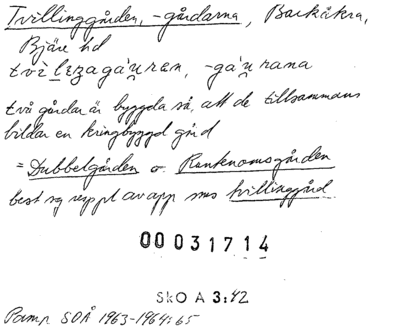 Tvillinggården, -gårdarna, Barkåkra,
Bjäre hd
två gårdar är byggda så, att de tillsammans
bildar en kringbyggd gård
= Dubbelgården o. Ranknomsgården
best sg av app mns tvillinggård
00031714
SkO A 3:42
Pamp SOÅ 1963-1964:65